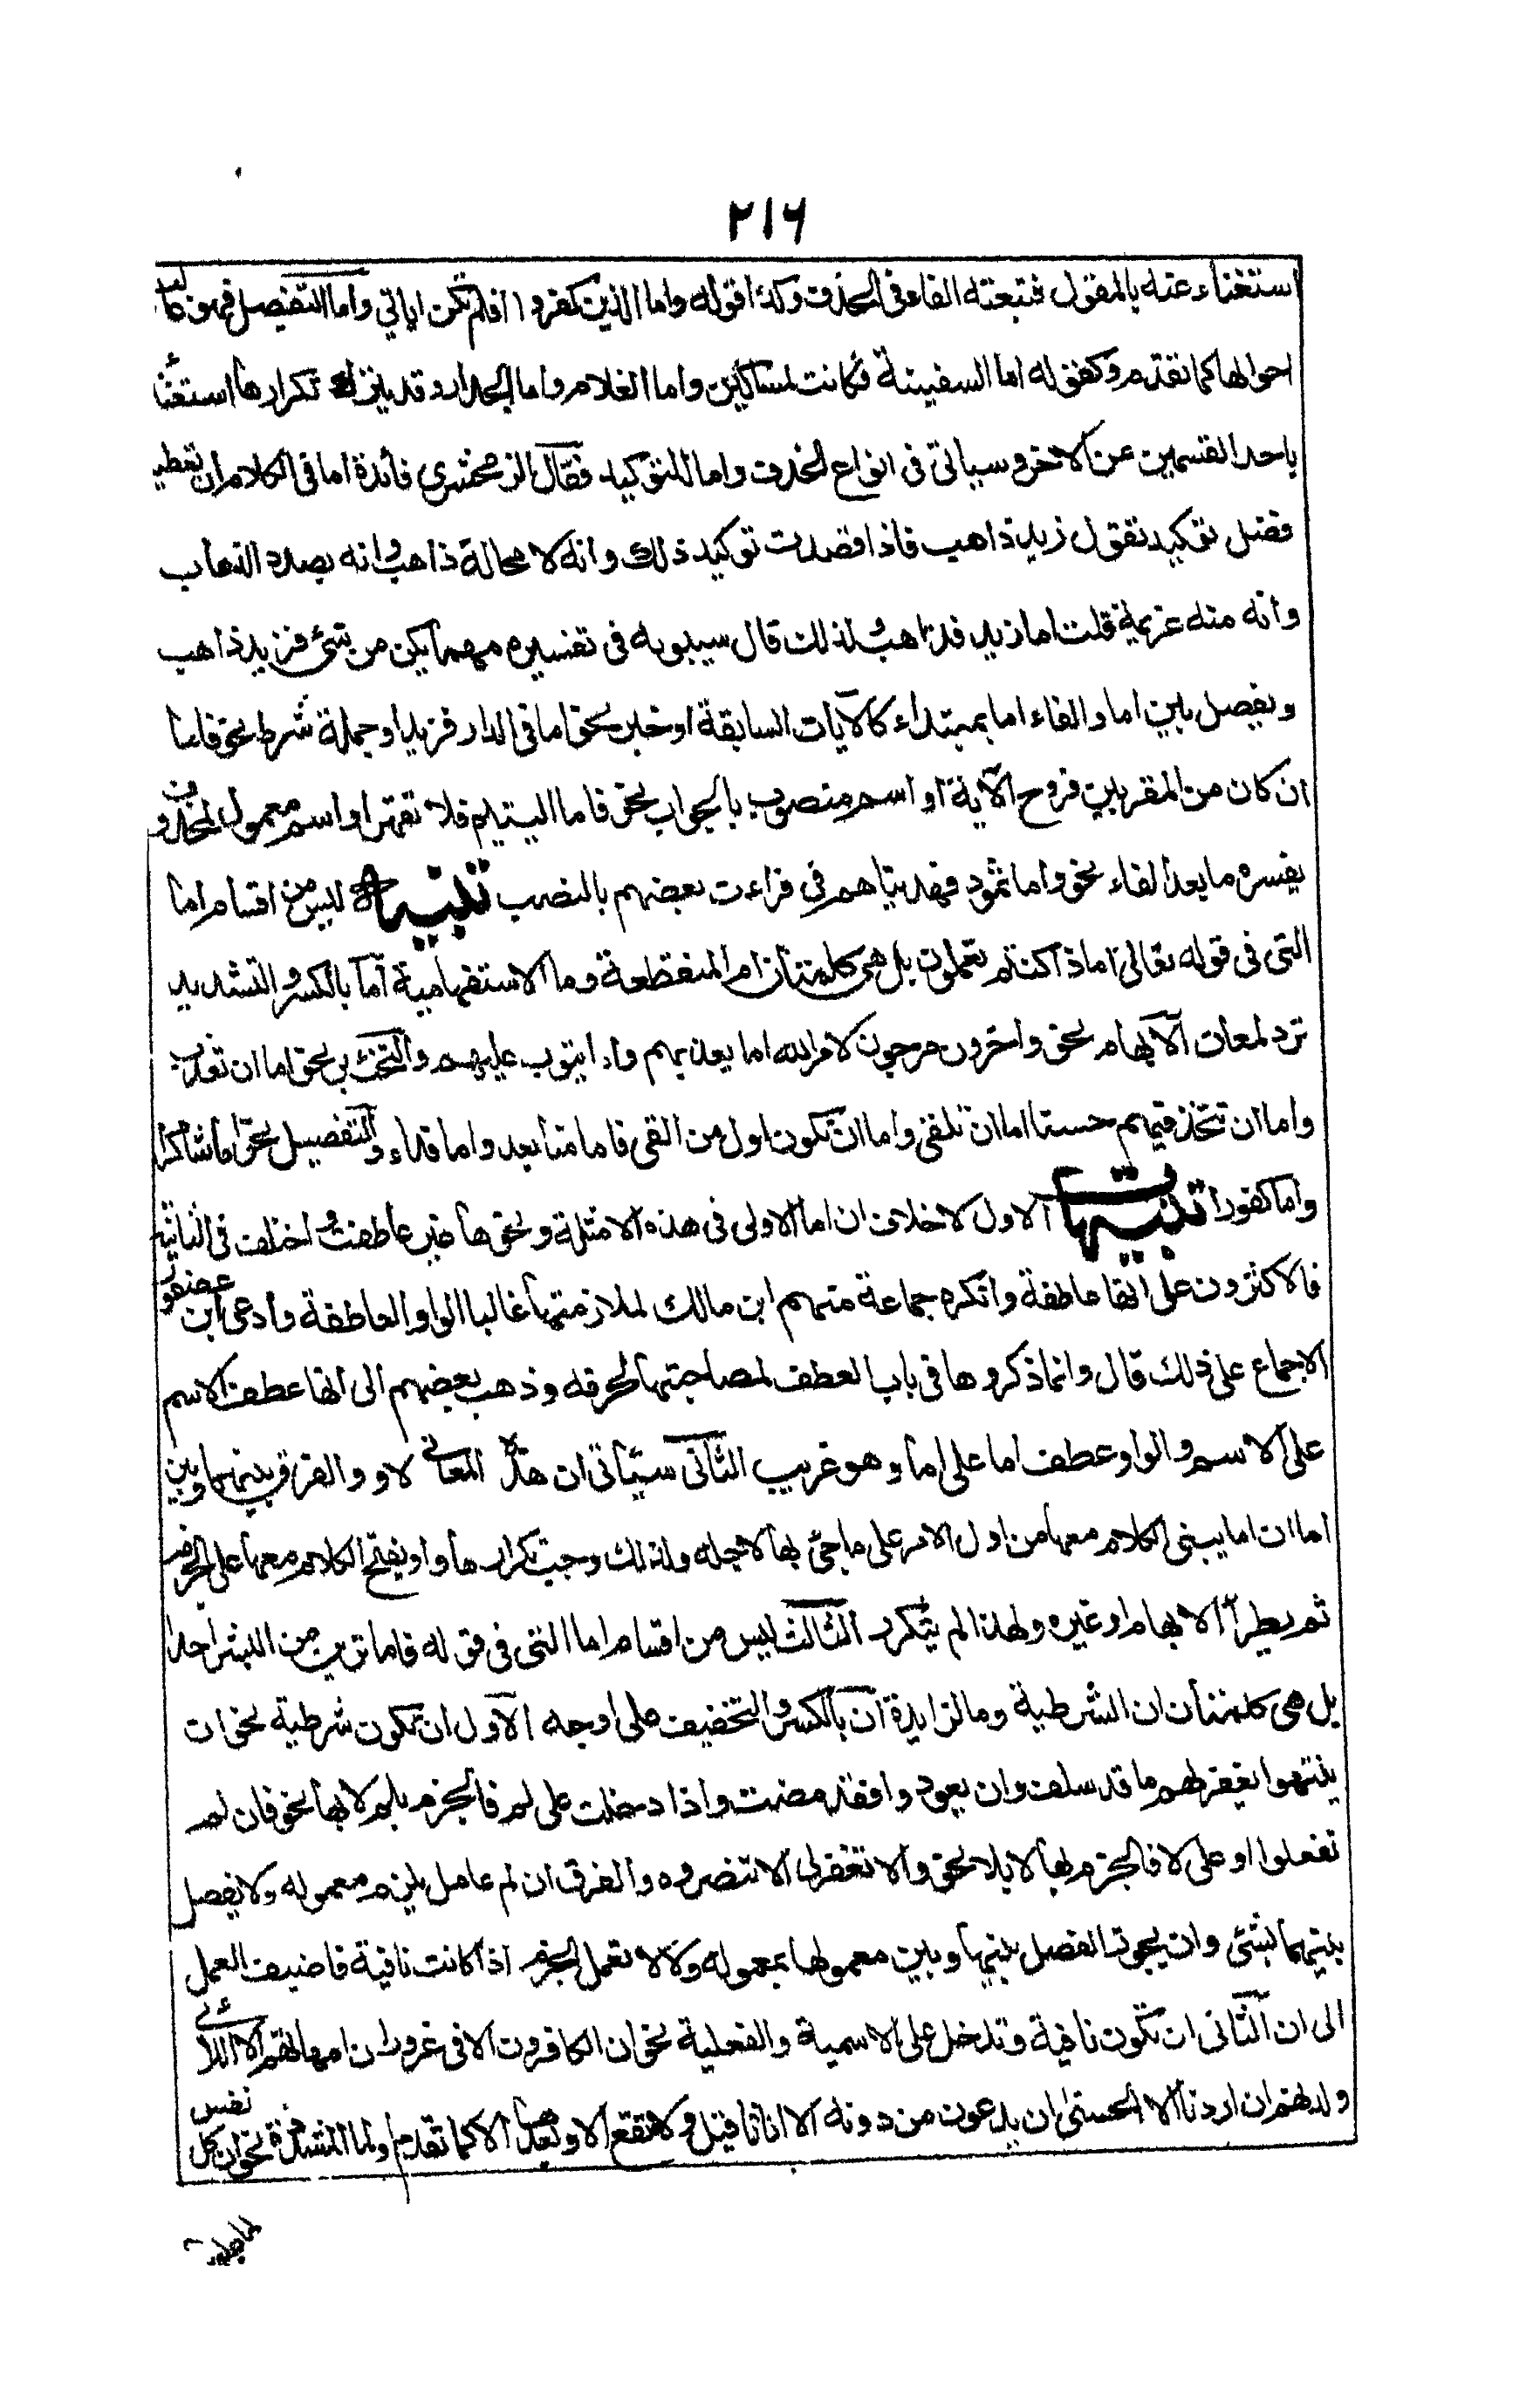 ٢١٦
استغناء عنه بالمقول فتبعته الفاء فى الحذف وكذا قوله واما الذين كفروا افلم تكن اياتي واما التفصيل فهو غالب
احوالها كما تقدم وكقوله اما السفينة فكانت لمساكين واما الغلام واما الجدار وقد يترك تكرارها استغنا
باحد القسمين عن الاخر وسياتى فى انواع الحذف واما التوكيد فقال الزمخشرى فائدة اما فى الكلام ان تعطيه
فضل توكيد تقول زيد ذاهب فاذا قصدت توكيد ذلك وانه لا محالة ذاهب وانه بصدد الذهاب
وانه منه عزيمة قلت اما زيد فذاهب ولذلك قال سيبويه فى تفسيره مهما يكن من شئ فزيد ذاهب
ويفصل بين اما والفاء اما بمبتداء كالآيات السابقة او خبر نحو اما فى الدار فزيد او جملة شرط نحو فاما
ان كان من المقربين فروح الآية او اسم منصوب بالجواب نحو فاما اليتيم فلا تقهر او اسم معمول لمحذوف
يفسره ما بعد الفاء نحو واما ثمود فهديناهم فى قراءت بعضهم بالنصب تنبيه ليس من اقسام اما
التى فى قوله تعالى اماذا كنتم تعملون بل هى كلمتان ام المنقطعة وما الاستفهامية اما بالكسر والتشديد
ترد لمعان الابهام نحو واخرون مرجون لامر الله اما يعذبهم واما يتوب عليهم والتخيير نحو اما ان تعذب
واما ان تتخذ فيهم حسنا اما ان تلقى واما ان نكون اول من القى فاما منا بعد واما فداء والتفصيل نحو اما شاكرا
واما كفورا تنبيهات الاول لاخلاف ان اما الاولى فى هذه الامثلة ونحوها غير عاطفة واختلف فى الثانية
فالاكثرون على انها عاطفة وانكره جماعة منهم ابن مالك لملازمتها غالبا الواو العاطفة وادعى ابن عصفور
الاجماع على ذلك قال وانما ذكروها فى باب العطف لمصاحبتها لحرفه وذهب بعضهم الى انها عطفت الاسم
على الاسم والواو عطف اما على اما وهو غريب الثانى سيأتى ان هذه المعانى لاو والفرق بينهما وبين
اما ان اما يبنى الكلام معها من اول الامر على ماجئ بها لاجله ولذلك وجب تكرارها واو يفتح الكلام معها على الجزم
ثم يطرأ الابهام او غيره ولهذا لم يتكرر الثالث ليس من اقسام اما التى فى قوله فاما ترين من البشر احدا
بل هى كلمتان ان الشرطية وما الزايدة ان بالكسر والتخفيف على اوجه الاول ان تكون شرطية نحو ان
ينتهوا يغفر لهم ما قد سلف وان يعودوا فقد مضت واذا دخلت على لم فالجزم بلم لا بها نحو فان لم
تفعلوا او على لا فالجزم بها لا بلا نحو والا تغفر لى الا تنصروه والفرق ان لم عامل يلزم معموله ولا يفصل
بينهما بشئ وان يجوز الفصل بينها وبين معمولها بمعموله ولا لا تعمل الجزم اذا كانت نافية فاضيف العمل
الى ان الثانى ان تكون نافية وتدخل على الاسمية والفعلية نحو ان الكافرون الا فى غرور ان امهاتهم الا اللائى
ولدنهم ان اردنا الا الحسنى ان يدعون من دونه الا اناثا قيل ولا تقع الا وبعدها الا كما تقدم او لما المشددة نحو ان كل نفس
لما عليها